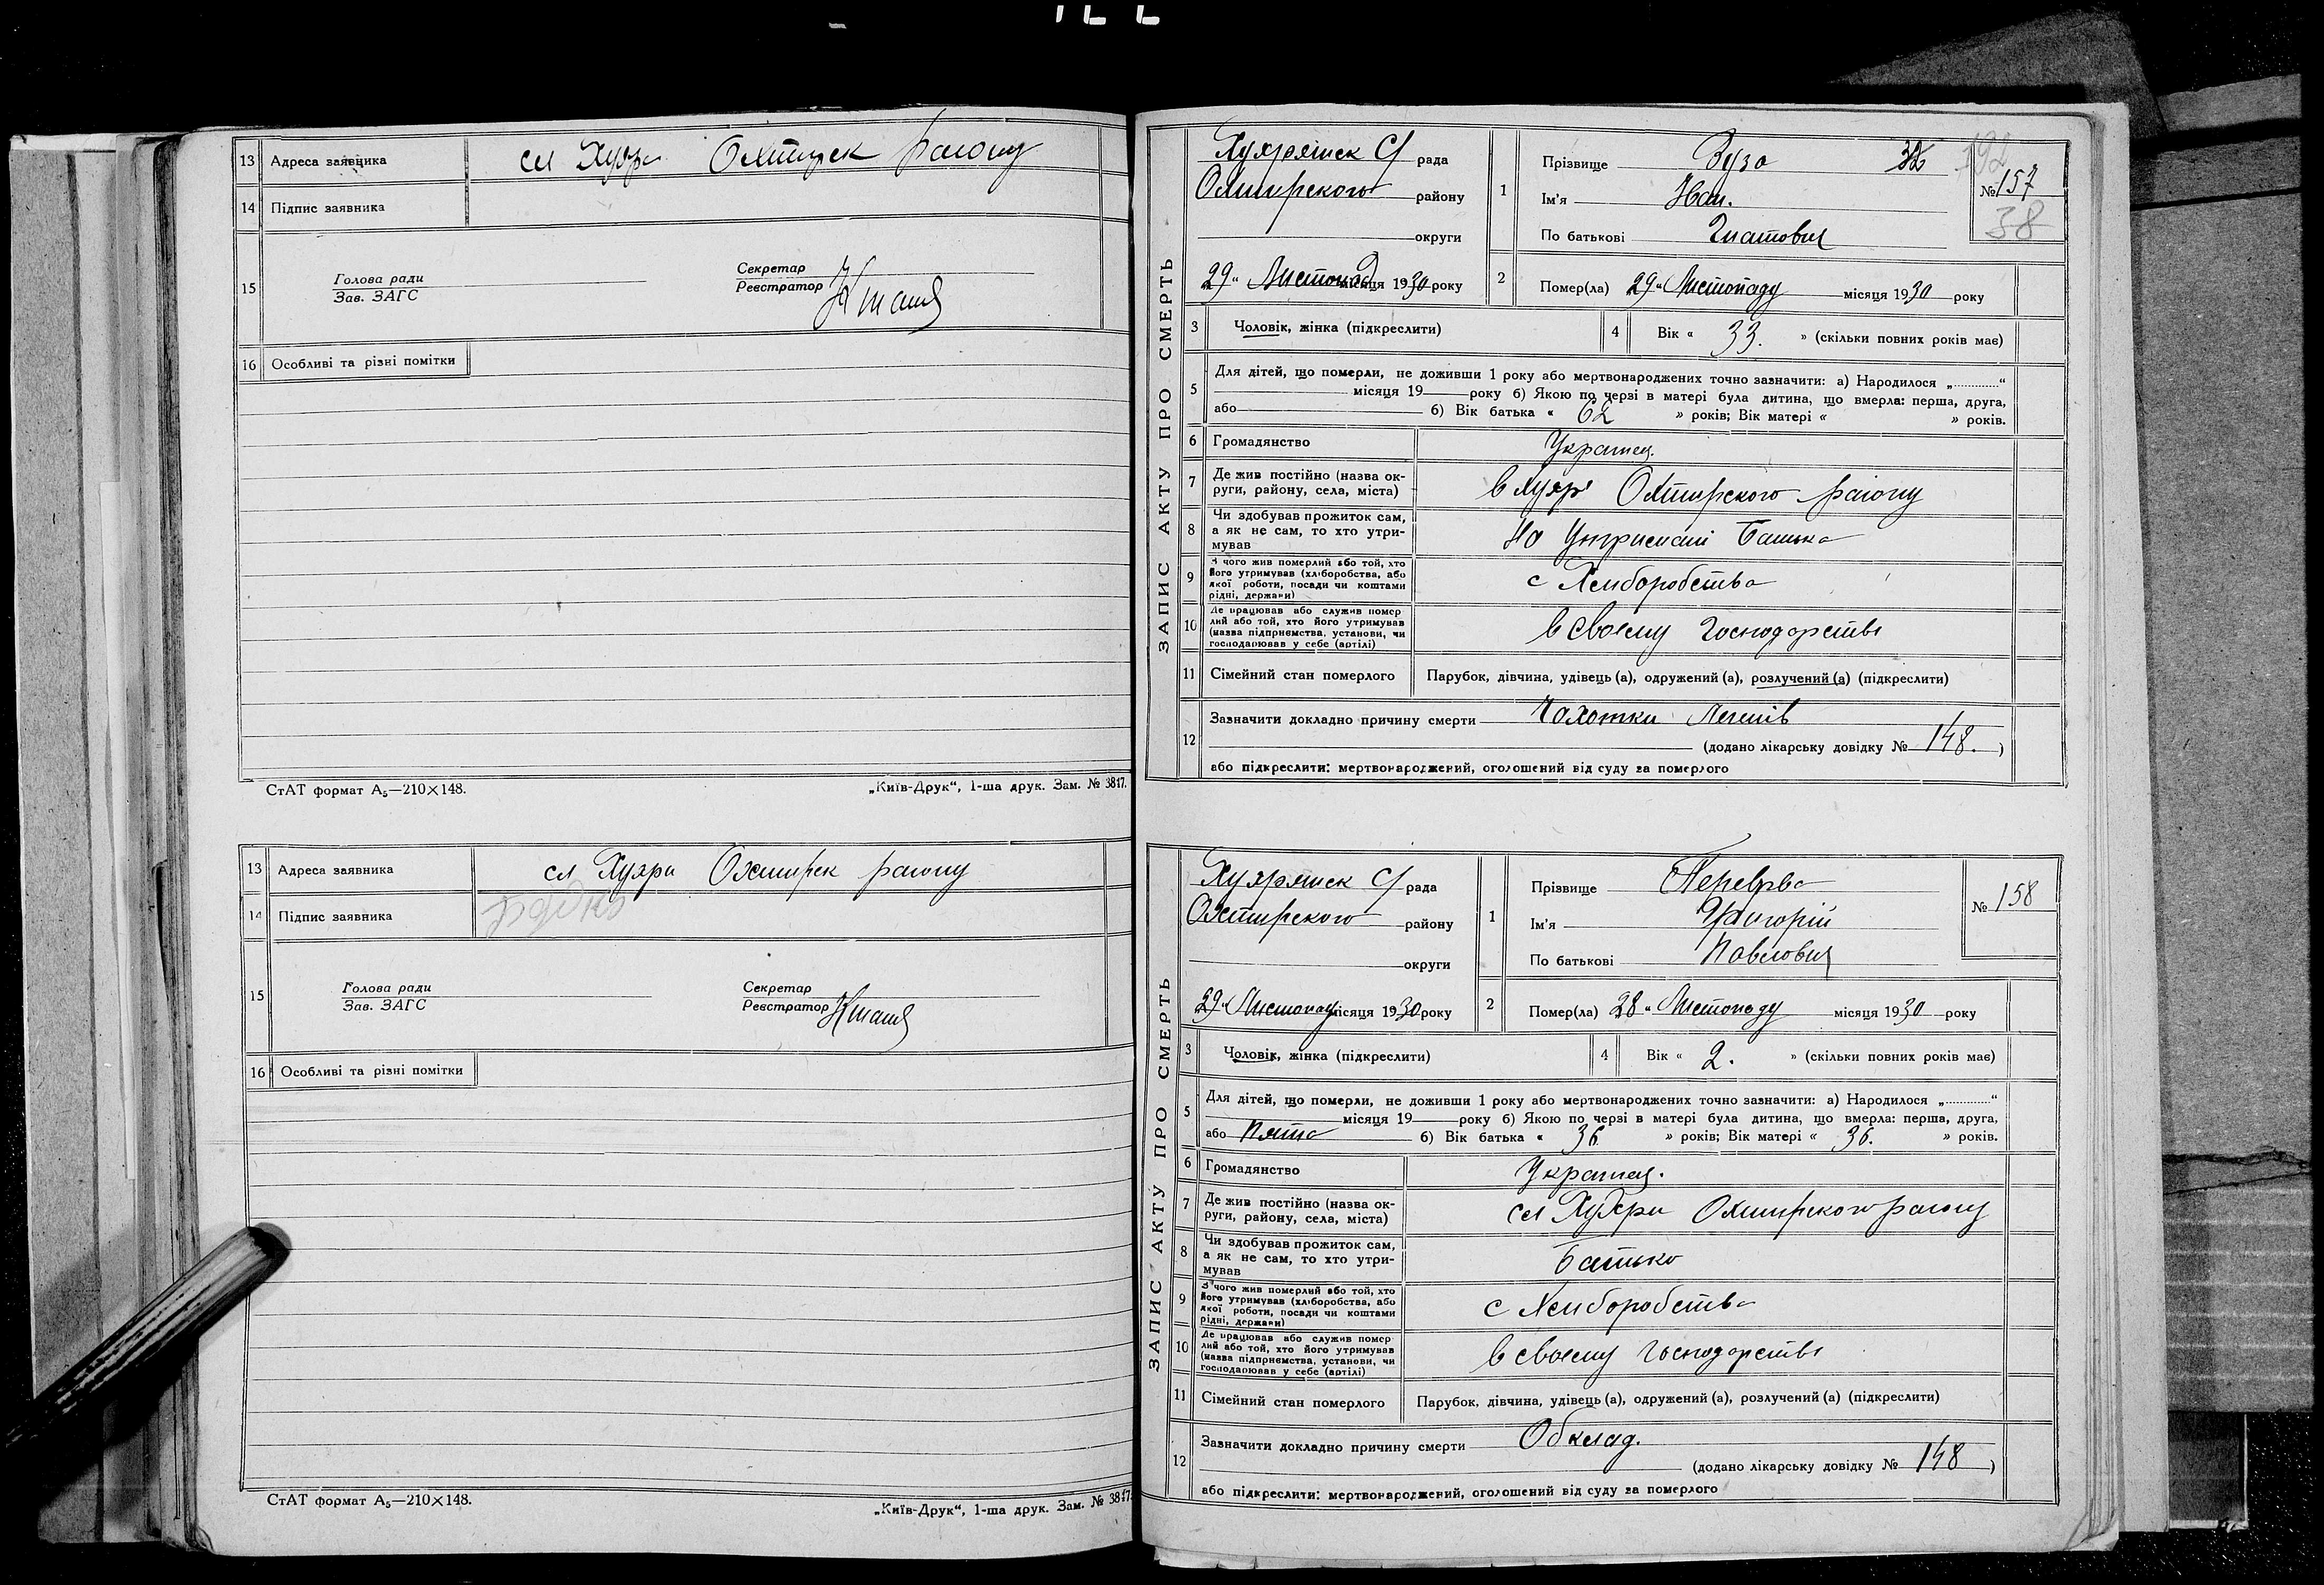 13 Адреса заявщика сл Хухри Охтирск району
14 Підпис заявника
15 Голова ради
Зав. ЗАГС
Секретар
Реєстратор
16 Особливі та різні помітки
СтАТ формат А₅—210×148.
„Київ-Друк“, 1-ша друк. Зам. № 3817.
13 Адреса заявника сл Хухри Охтирск району
14 Підпис заявника
15 Голова ради
Зав. ЗАГС
Секретар
Реєстратор
16 Особливі та різні помітки
СтАТ формат А₅—210×148.
„Київ-Друк“, 1-ша друк. Зам. № 3817.
ЗАПИС АКТУ ПРО СМЕРТЬ
Хухрянск С/ рада
Охтирского району
округи
29 “ Листопад місяця 1930 року
1 Прізвище Зуза
Ім'я Іван.
По батькові Гнатович
№ 157
38
2 Помер(ла) 29 “ Листопаду місяця 1930 року
3 Чоловік, жінка (підкреслити)
4 Вік « 33. » (скільки повних років має)
5 Для дітей, що померли, не доживши 1 року або мертвонароджених точно зазначити: а) Народилося „............“
місяця 19 року б) Якою по черзі в матері була дитина, що вмерла: перша, друга,
або б) Вік батька « 62 » років; Вік матері « » років.
6 Громадянство Украінец.
7 Де жив постійно (назва округи, району, села, міста) в Хухрі Охтирского району
8 Чи здобував прожиток сам,
а як не сам, то хто утримував На Утримані Батька
9 З чого жив померлий або той, хто
його утримував (хліборобства, або
якої роботи, посади чи коштами
рідні, держави) с Хлиборобства
10 Де працював або служив помер
лий або той, хто його утримував
(назва підприємства, установи, чи
господарював у себе (артілі) в своему господарстві
11 Сімейний стан померлого Парубок, дівчина, удівець (а), одружений (а), розлучений (а) (підкреслити)
12 Зазначити докладно причину смерти Чахотки Легенів
(додано лікарську довідку № 148. )
або підкреслити: мертвонароджений, оголошений від суду за померлого
ЗАПИС АКТУ ПРО СМЕРТЬ
Хухрянск С/ рада
Охтирского району
округи
29 “ Листопад місяця 1930 року
1 Прізвище Перервa
Ім'я Григорій
По батькові Павлович
№ 158
2 Помер(ла) 28 “ Листопаду місяця 1930 року
3 Чоловік, жінка (підкреслити)
4 Вік « 2. » (скільки повних років має)
5 Для дітей, що померли, не доживши 1 року або мертвонароджених точно зазначити: а) Народилося „............“
місяця 19 року б) Якою по черзі в матері була дитина, що вмерла: перша, друга,
або пята б) Вік батька « 36 » років; Вік матері « 36. » років.
6 Громадянство Украінец.
7 Де жив постійно (назва округи, району, села, міста) сл Хухри Охтирского району
8 Чи здобував прожиток сам,
а як не сам, то хто утримував Батько
9 З чого жив померлий або той, хто
його утримував (хліборобства, або
якої роботи, посади чи коштами
рідні, держави) с Хлиборобства
10 Де працював або служив помер
лий або той, хто його утримував
(назва підприємства, установи, чи
господарював у себе (артілі) в своему господарстві
11 Сімейний стан померлого Парубок, дівчина, удівець (а), одружений (а), розлучений (а) (підкреслити)
12 Зазначити докладно причину смерти Обклад.
(додано лікарську довідку № 148 )
або підкреслити: мертвонароджений, оголошений від суду за померлого